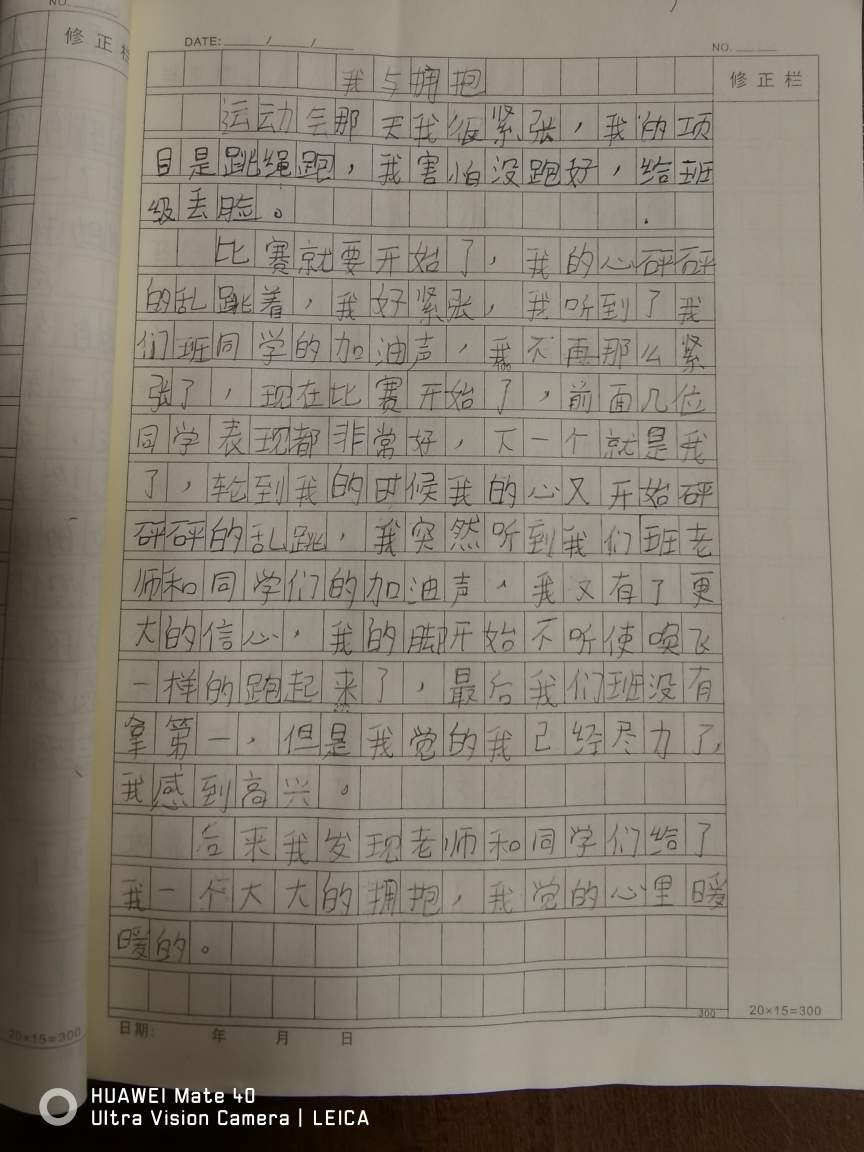 NO.
修正栏
DATE: / /
NO.
我与拥抱
修正栏
运动会那天我很紧张，我的项
目是跳绳跑，我害怕没跑好，给班
级丢脸。
比赛就要开始了，我的心砰砰
的乱跳着，我好紧张，我听到了我
们班同学的加油声，我不再那么紧
张了，现在比赛开始了，前面几位
同学表现都非常好，下一个就是我
了，轮到我的时候我的心又开始砰
砰砰的乱跳，我突然听到我们班老
师和同学们的加油声，我又有了更
大的信心，我的脚开始不听使唤飞
一样的跑起来了，最后我们班没有
拿第一，但是我觉的我已经尽力了，
我感到高兴。
后来我发现老师和同学们给了
我一个大大的拥抱，我觉的心里暖
暖的。
300
20×15=300
20×15=300
日期： 年 月 日
HUAWEI Mate 40
Ultra Vision Camera | LEICA